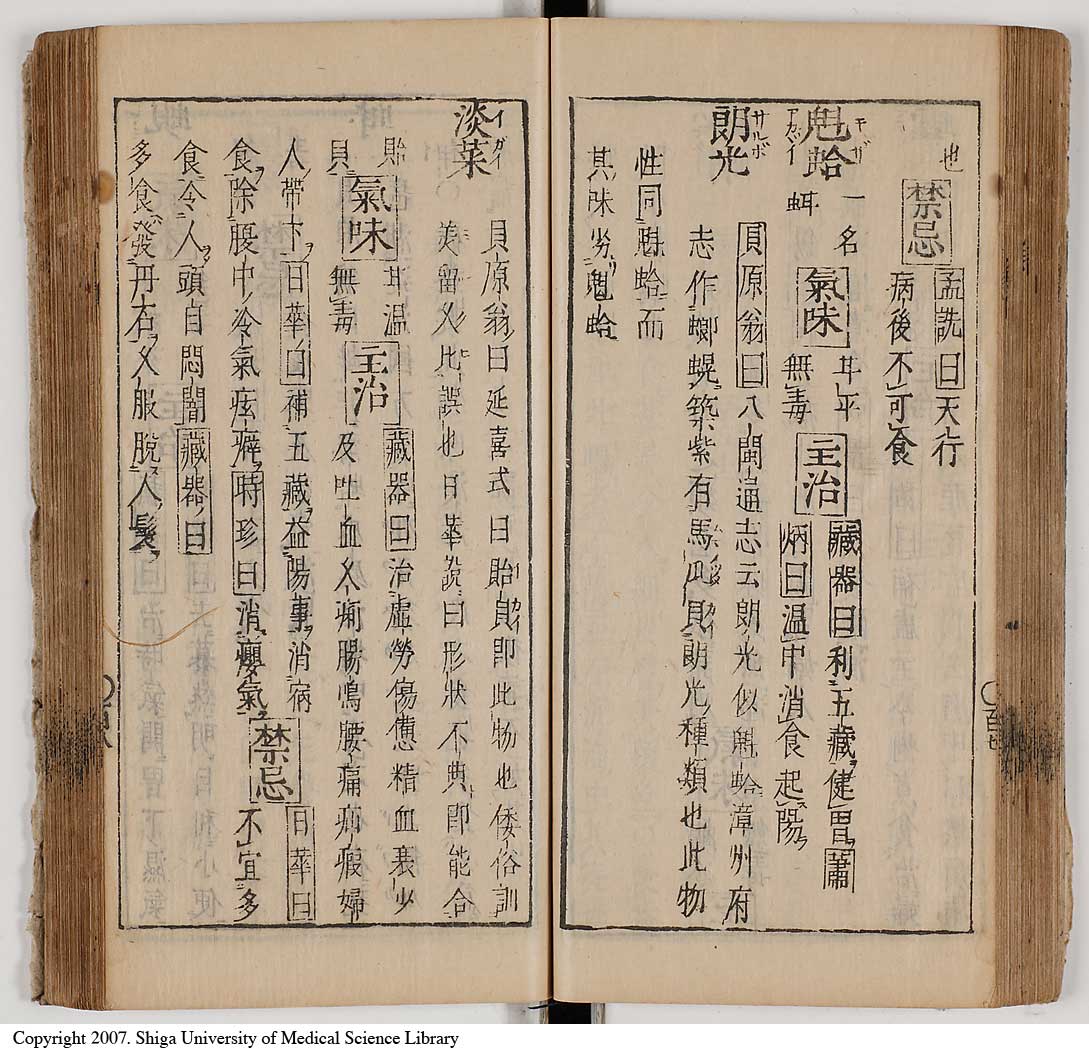 也禁忌孟詵曰天行
病後不可食
魁蛤 キサ アカガイ
一名蚶
氣味
甘平
無毒
主治
藏器曰利五藏健胃蕭
炳曰温中消食起陽
朗光 サルボ
貝原翁曰八閩通志云朗光似魁蛤漳州府
志作螂築紫有馬貝朗光種類也此物
性同魁蛤而
其味劣魁蛤
百七
淡菜 イガイ
貝原翁曰延喜式曰貽貝即此物也倭俗訓
美留久比誤也日華説曰形狀不典即能合
貽
貝
氣味
甘温
無毒
主治
藏器曰治虚勞傷憊精血衰少
及吐血久痢腸鳴腰痛疝瘕婦
人帶下日華曰補五藏益陽事消
食除腰中冷氣痃癖時珍曰消癭氣
禁忌
日華曰
不宜多
食令人頭目悶闇藏器曰
多食發丹石久服脱人髮
百八
Copyright 2007. Shiga University of Medical Science Library